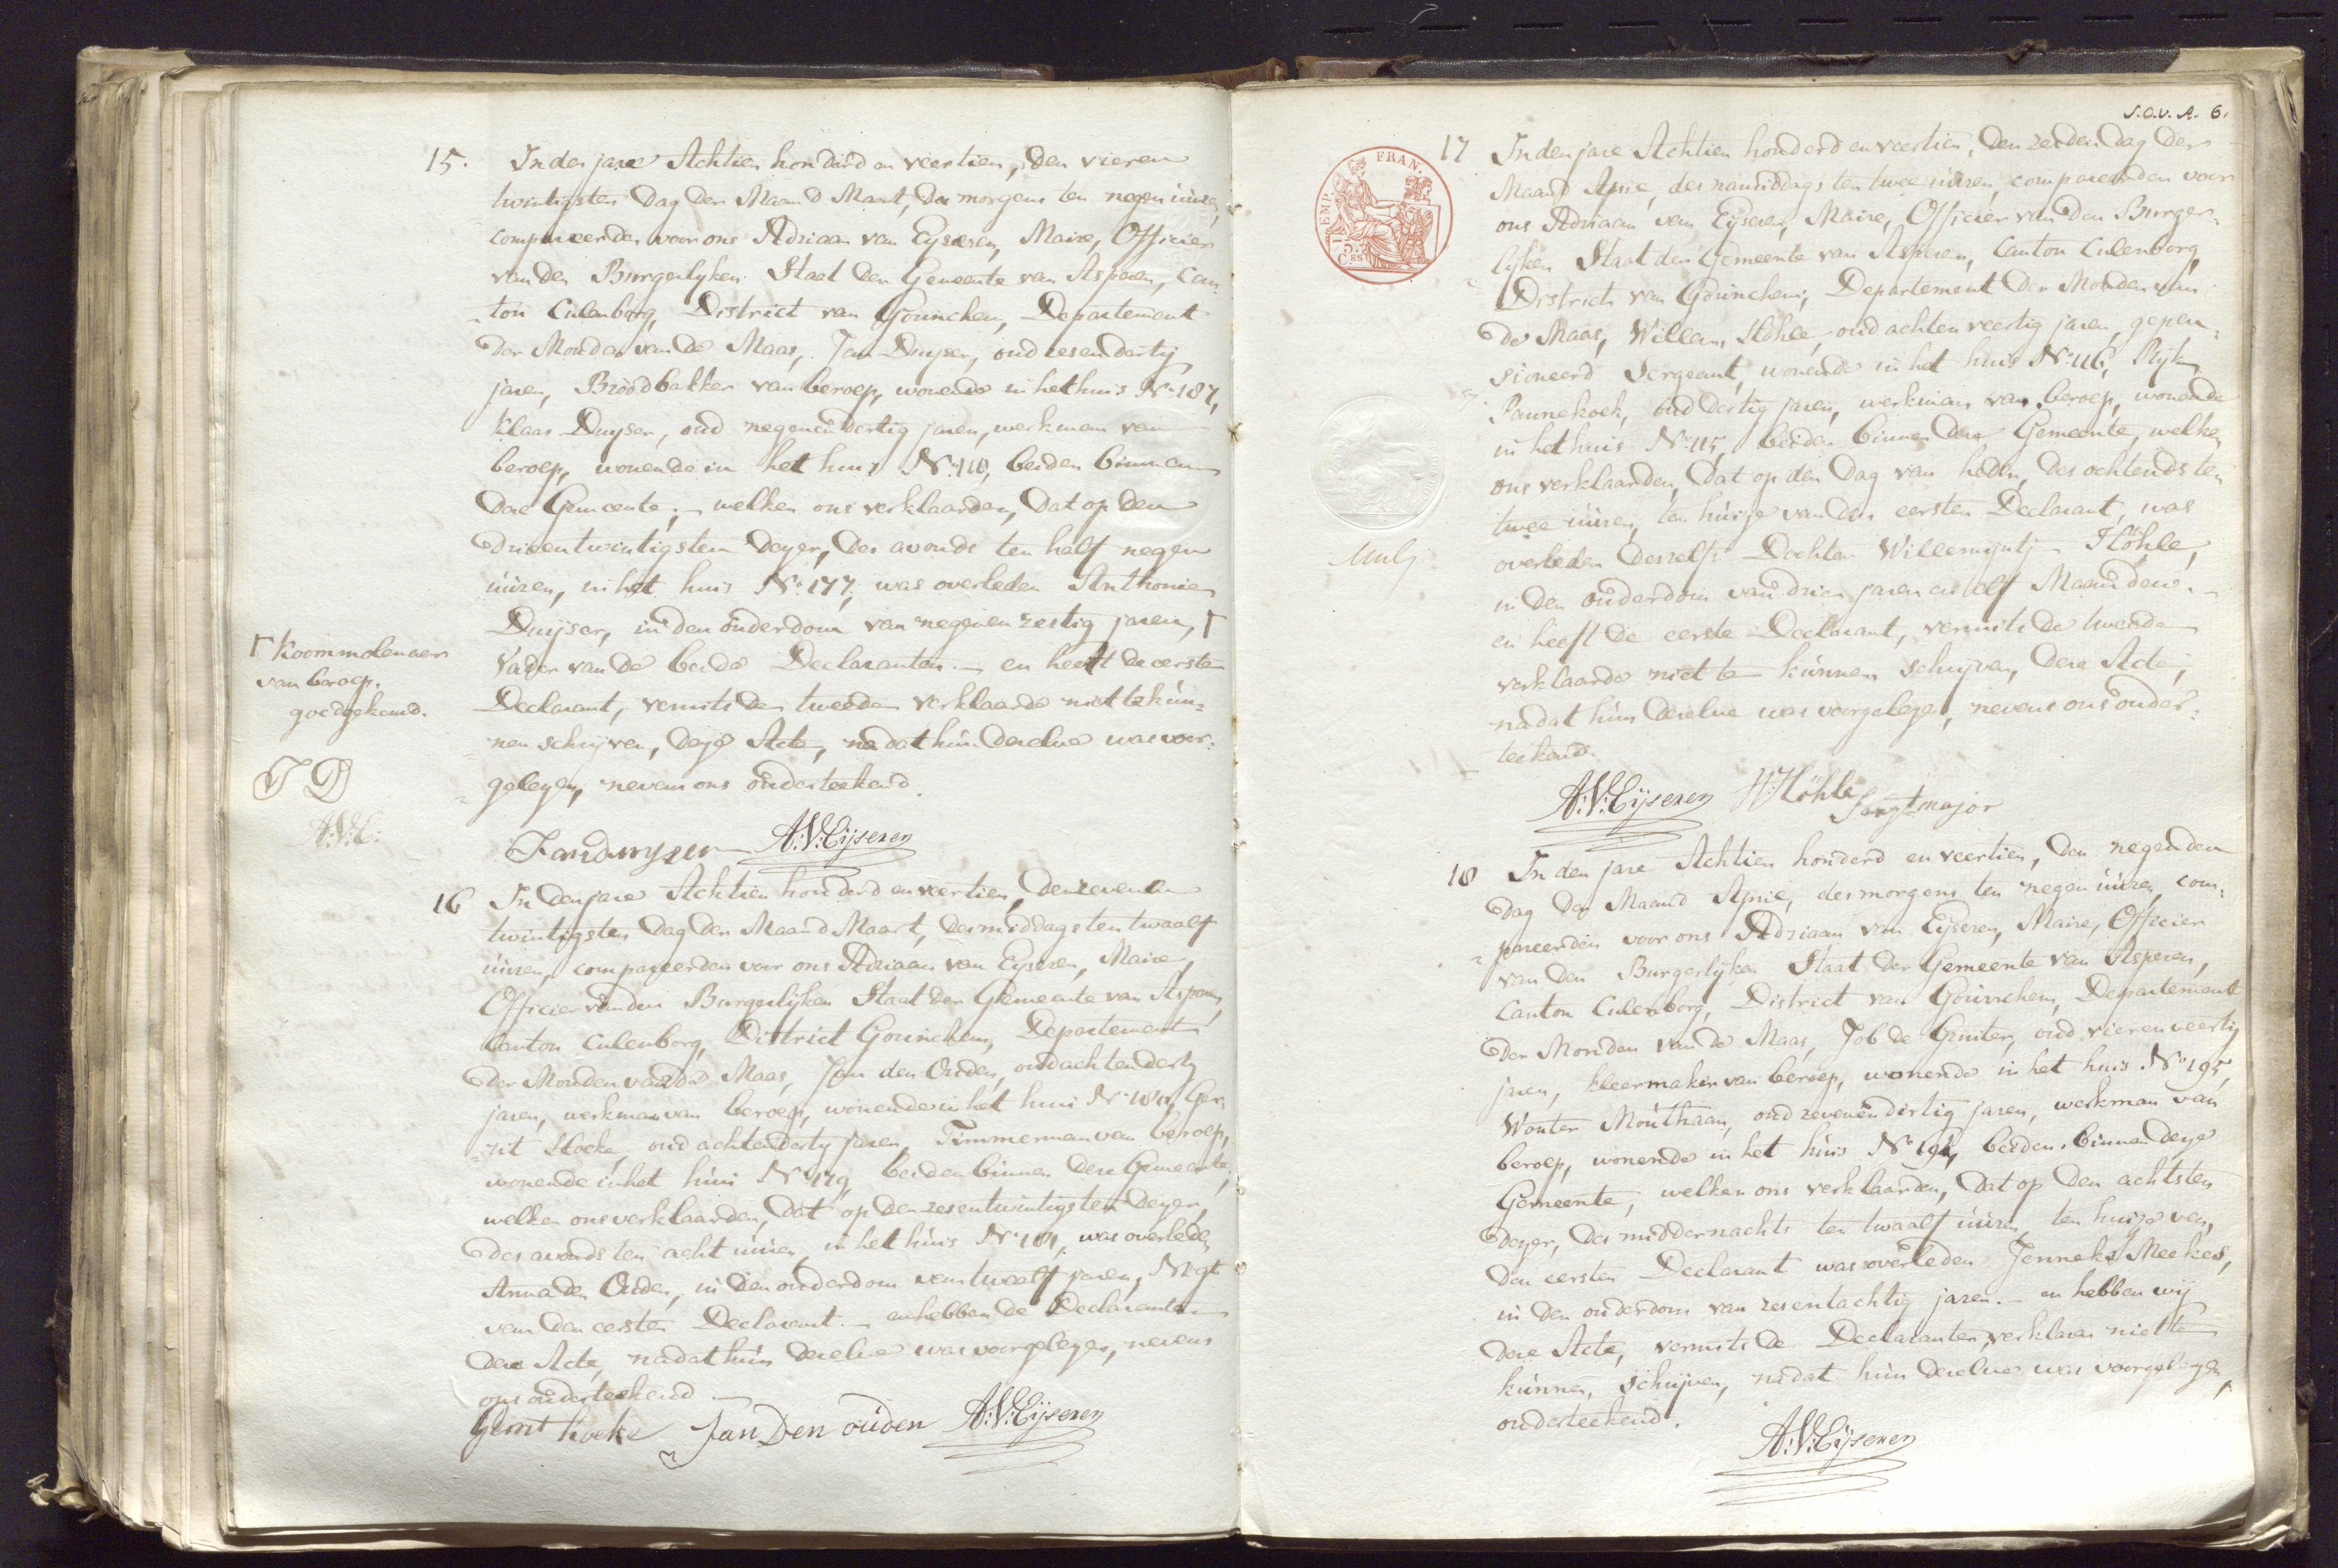 15. In den jare Achtien honderd en veertien, den vieren
twintigsten Dag der Maand Maart, des morgens ten negen uúren,
compareerden voor ons Adriaan van Eyseren, Maire, Officier
van den Burgerlyken Staat der Gemeente van Asperen, Can
ton Culenborg, District van Gorinchem, Departement
der Monden van de Maas, Jan Duyser, oud zesendertig
jaren, Broodbakker van beroep, wonende in het huis No. 187,
Klaas Duyser, oud negenendertig jaren, werkman van
beroep, wonende in het huis No. 110, beiden binnen
deze Gemeente; – welken ons verklaarden, dat op den
drieentwintigsten dezer, des avonds ten half negen
uúren, in het huis No. 177, was overleden Anthonie
Duijser, in den ouderdom van negenen zestig jaren, Γ
Vader van de beide Declaranten. – en heeft de eerste
Declarant, vermits de tweede verklaarde niet te kún=
nen schrijven, deze Acte, na dat hún dezelve was voor=
gelezen, nevens ons onderteekend.
Γ Koornmolenaer
van beroep.
goedgekeurd.
J D
A:V:E:
Jan duyzer A:V:Eijseren
16 In den jare Achtien honderd en veertien, den zevenen
twintigsten Dag der Maand Maart, des middags ten twaalf
uúren, compareerden voor ons Adriaan van Eyseren, Maire,
Officier van den Burgerlijken Staat der Gemeente van Asperen,
Canton Culenborg, District Gorinchem, Departement
der Monden van de Maas, Jan den Ouden, oud achtendertig
jaren, werkman van beroep, wonende in het huis No. 180, Ger=
rit Kocke, oud achtendertig jaren, Timmerman van beroep,
wonende in het húis No. 179, beiden binnen deze Gemeente;
welken ons verklaarden, dat op den zesentwintigsten dezer,
des avonds ten acht uúren, in het húis No. 181, was overleden
Anna den Ouden, in den ouderdom van twaalf jaren, Nigt
van den eersten Declarant. – en hebben de Declaranten
deze Acte, nadat hún dezelve was voorgelezen, nevens
ons onderteekend. –
Gerrit Kocke Jan Den oúden A:V:Eijseren
S.O.V.A. 6.
EMP. FRAN.
75
CES
17 In den jare Achtien honderd en veertien, den zesden Dag der
Maand April, des namiddags ten twee uúren, compareerden voor
ons Adriaan van Eyseren, Maire, Officier van den Burger=
lyken Staat der Gemeente van Asperen, Canton Culenborg,
District van Gorinchem, Departement der Monden van
de Maas, Willem Höhle, oud achtenveertig jaren, gepen=
sioneerd Sergeant, wonende in het huis No. 116, Ryk
Pannekoek, oud dertig jaren, werkman van beroep, wonende
in het huis No. 115, beiden binnen deze Gemeente, welke
ons verklaarden, dat op den Dag van heden, des ochtends ten
twee uúren, ten húize van den eersten Declarant, was
overleden deszelfs Dochter Willemijntj Höhle,
in den oúderdom van drie jaren en elf Maanden. –
en heeft de eerste Declarant, vermits de tweede
verklaarde niet te kúnnen schrijven, deze Acte,
nadat hún dezelve was voorgelezen, nevens ons onder=
teekend.
A:V:Eijseren W:Höhle
Sergt major
18 In den jare Achtien honderd en veertien, den negenden
dag der Maand April, des morgens ten negen uúren, com=
pareerden voor ons Adriaan van Eijseren, Maire, Officier
van den Burgerlijken Staat der Gemeente van Asperen,
Canton Culenborg, District van Gorinchem, Departement
der Monden van de Maas, Job de Gruiter, oud vierenveertig
jaren, kleermaker van beroep, wonende in het huis No. 195,
Wouter Mouthaan, oud zevenendertig jaren, werkman van
beroep, wonende in het húis No. 194, beiden binnen deze
Gemeente, welken ons verklaarden, dat op den achtsten
dezer, des middernachts ten twaalf uúren, ten huize van
den eersten Declarant was overleden Jenneke Meekes,
in den ouderdom van zesentachtig jaren. – en hebben wij
deze Acte, vermits de Declaranten verklaren niet te
kúnnen schrijven, nadat hún dezelve was voorgelezen,
onderteekend.
A:V:Eijseren